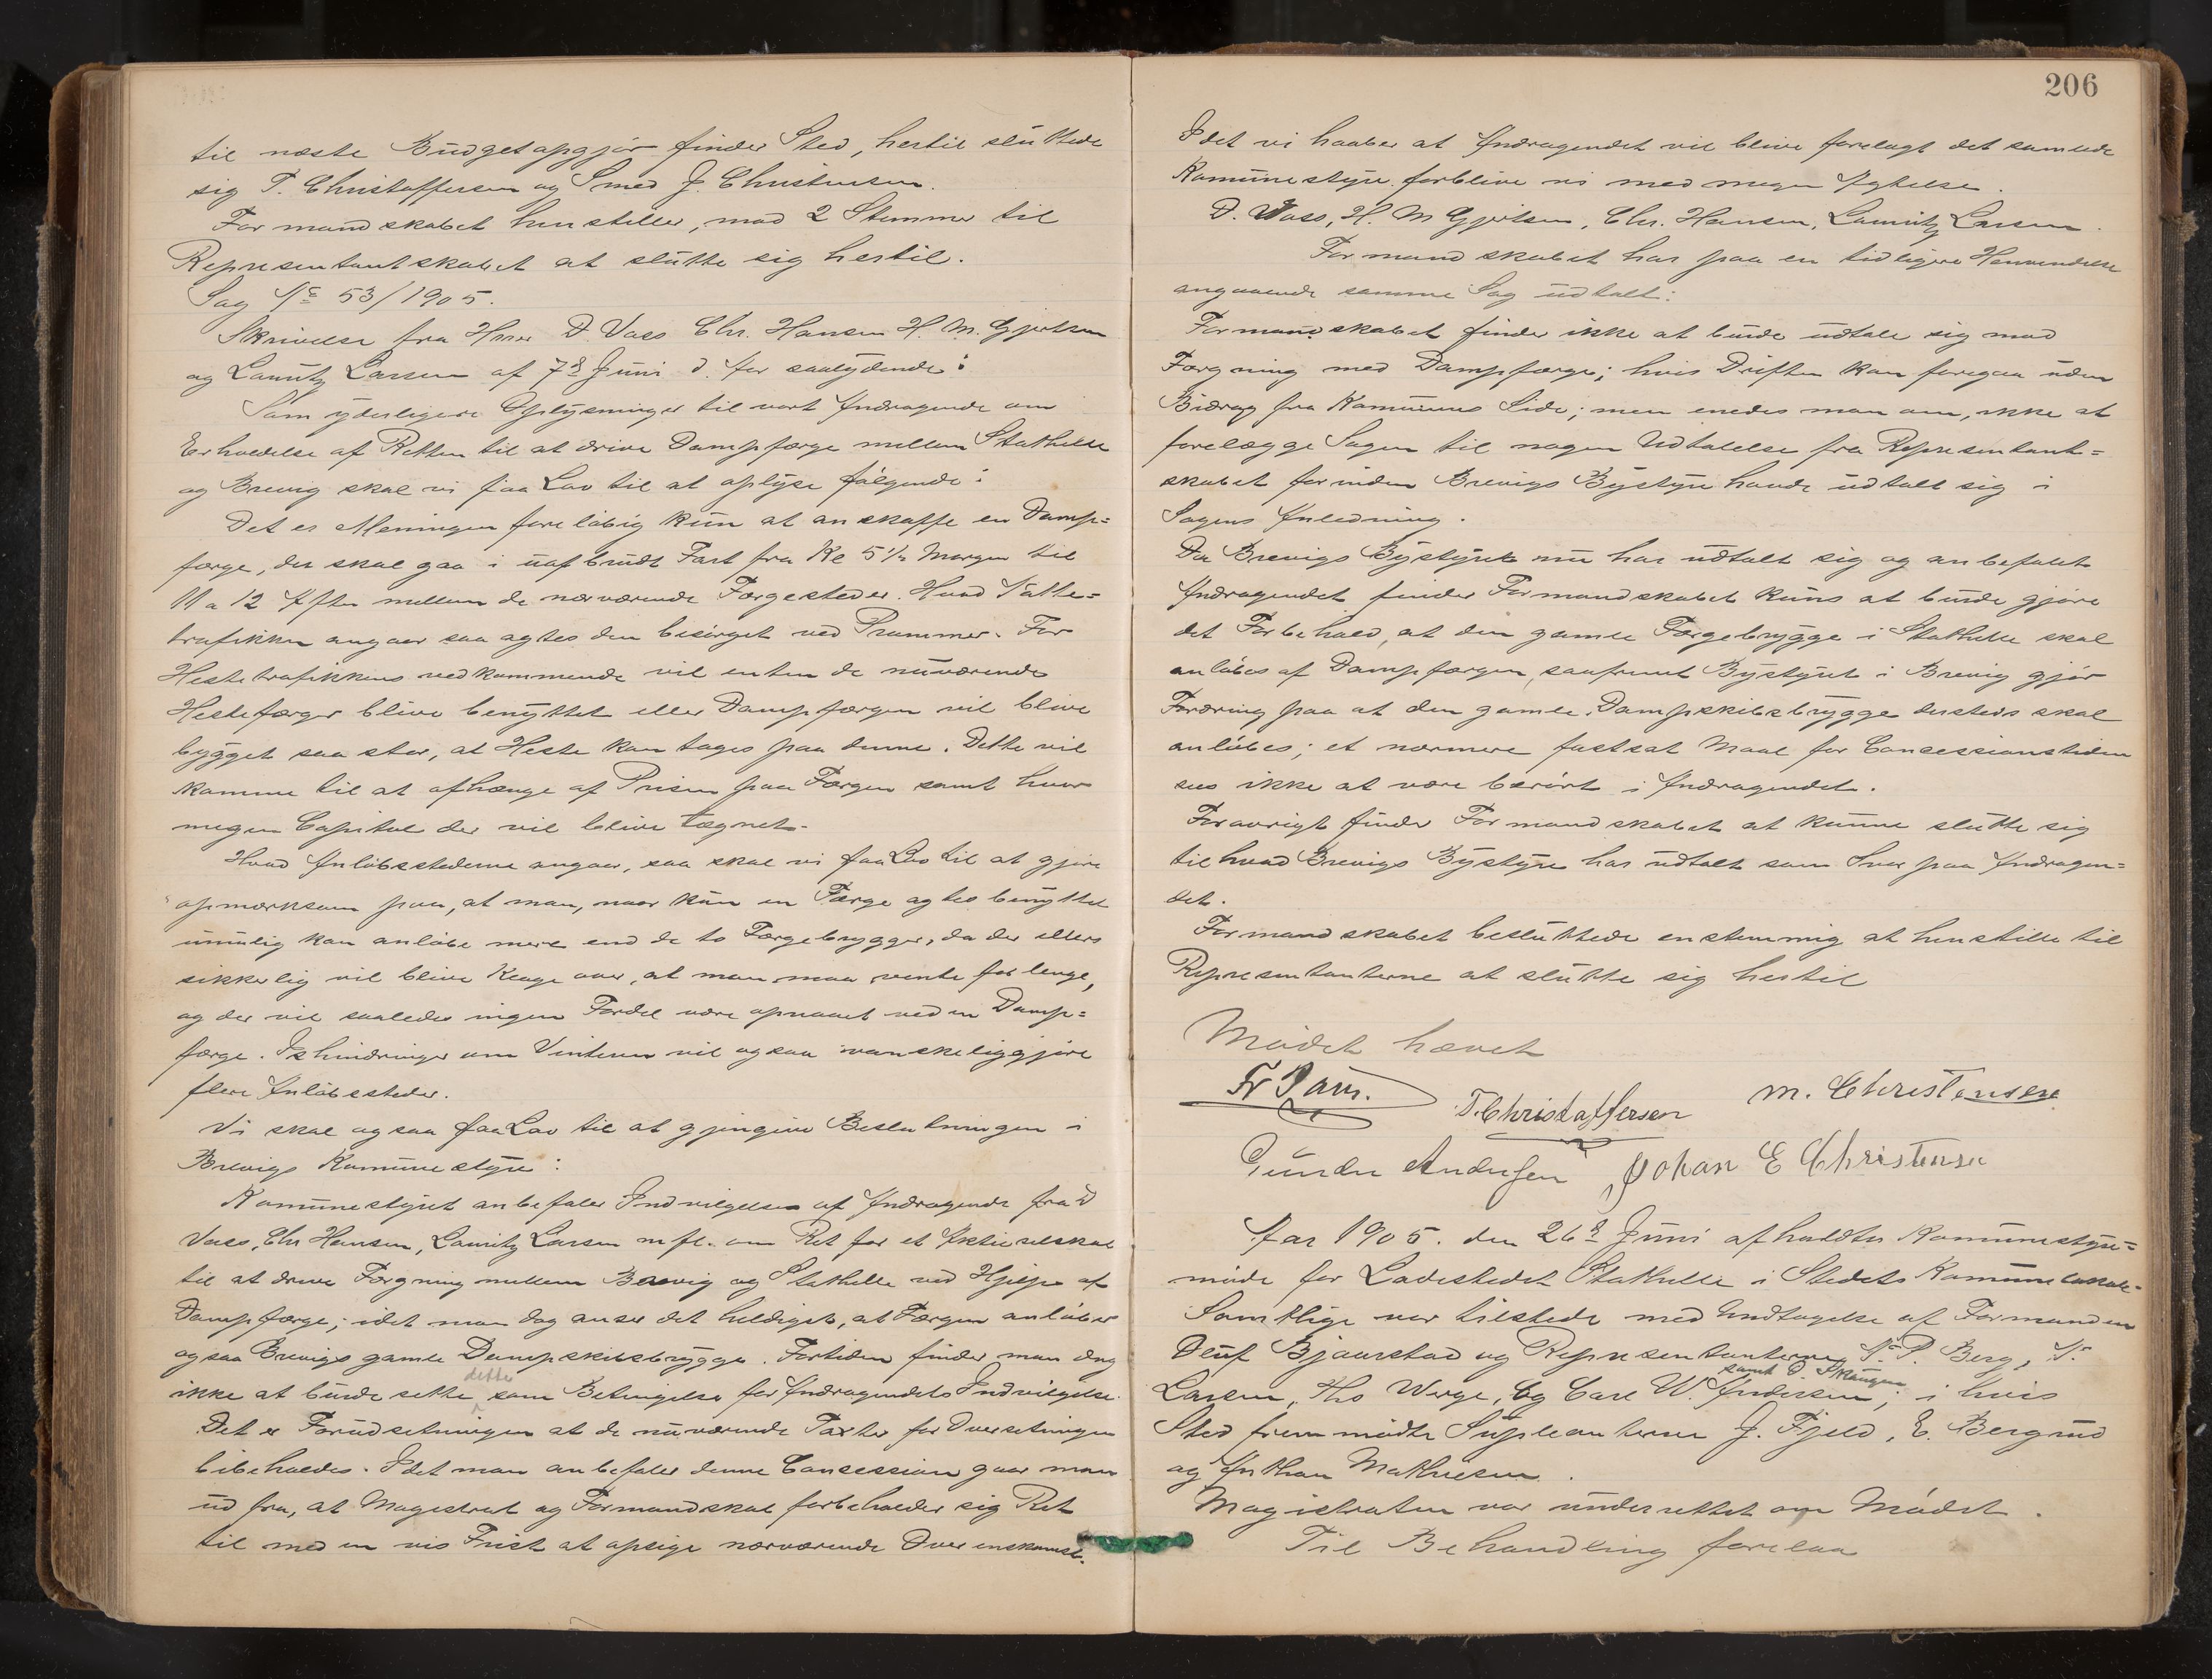 til næste Budgetopgjør finder Sted, hertil sluttede
sig T. Christoffersen og Smed J. Christensen.
Formandskabet henstiller, mod 2 Stemmer til
Representantskabet at slutte sig hertil.
Sag No 53/1905.
Skrivelse fra Herr D. Vass Chr. Hansen H. M. Gjertsen
og Lauritz Larsen af 7de Juni d. Aar saalydende:
Som yderligere Oplysninger til vort Andragende om
Erholdelse af Retten til at drive Dampfærge mellem Stathelle
og Brevig skal vi faa Lov til at oplyse følgende:
Det er Meningen foreløbig kun at anskaffe en Damp=
færge, der skal gaa i uafbrudt Fart fra Kl 5½ Morgen til
11 a 12 Aften mellem de nærværende Færgesteder. Hvad Natte=
trafikken angaar saa agtes den besørget ved Prammer. For
Hestetrafikkens vedkommende vil enten de nuværende
Hestefærger blive benyttet eller Dampfærgen vil blive
bygget saa stor, at Heste kan tages paa denne. Dette vil
komme til at afhænge af Prisen paa Færgen samt hvor
megen Capital der vil blive tegnet.
Hvad Anløbsstederne angaar, saa skal vi faa Lov til at gjøre
opmærksom paa, at man, naar kun en Færge agtes benyttet
umulig kan anløbe mere end de to Færgebrygger, da der ellers
sikkerlig vil blive Klage over, at man maa vente for lenge,
og der vil saaledes ingen Fordel være opnaaet ved en Damp=
færge. Ishindringer om Vinteren vil ogsaa vanskeliggjøre
flere Anløbssteder.
Vi skal ogsaa faa Lov til at gjengive Beslutningen i
Brevigs Komunestyre:
Komunestyret anbefaler Indvilgelsen af Andragende fra D
Vass, Chr Hansen, Lauritz Larsen m fl. om Ret for et Aktieselskab
til at drive Færgning mellem Brevig og Stathelle ved Hjelp af
Dampfærge; idet man dog anser det heldigst, at Færgen anløber
ogsaa Brevigs gamle Dampskibsbrygge. Fortiden finder man dog
ikke at burde sette dette som Betingelse for Andragendets Indvilgelse.
Det er Forudsetningen at de nuværende Taxter for Oversetningen
bibeholdes. Idet man anbefaler denne Consession gaar man
ud fra, at Magestrat og Formandskab forbeholder sig Ret
til med en vis Frist at opsige nærværende Overenskomst.
206
Idet vi haaber at Andragendet vil blive forelagt det samlede
Komunestyre forblive vi med megen Agtelse.
D. Vass, H. M Gjertsen, Chr. Hansen, Lauritz Larsen.
Formandskabet har paa en tidligere Henvendelse
angaaende samme Sag udtalt:
Formandskabet finder ikke at burde udtale sig mod
Færgning med Dampfærge; hvis Driften kan foregaa uden
Bidrag fra Komunens Side; men enedes man om, ikke at
forelægge Sagen til nogen Udtalelse fra Representant=
skabet forinden Brevigs Bystyre havde udtalt sig i
Sagens Anledning.
Da Brevigs Bystyre nu har udtalt sig og anbefalet
Andragendet finder Formandskabet kuns at burde gjøre
det Forbehold, at den gamle Færgebrygge i Stathelle skal
anløbes af Dampfærgen, saafremt Bystyret i Brevig gjør
Fordring paa at den gamle Dampskibsbrygge dersteds skal
anløbes; et nærmere fastsat Maal for Consessionstiden
sees ikke at være berørt i Andragendet.
Forøvrigt finder Formandskabet at kunne slutte sig
til hvad Brevigs Bystyre har udtalt som Svar paa Andragen=
det.
Formandskabet besluttede enstemmig at henstille til
Representanterne at slutte sig hertil
Mødet hævet
T. Christoffersen M. Christensen
Gunder Andersen Johan E Christensen
Aar 1905. den 26de Juni afholdtes Komunestyre=
møde for Ladestedet Stathelle i Stedets Komunelokale.
Samtlige var tilstede med Undtagelse af Formanden
Oluf Bjaarstad og Representanterne N. P. Berg, N.
Larsen, Ths Werge, Og Carl W. Andersen, samt O. ; i hvis
Sted fremmødte Supleanterne J. Fjeld, E. Bergrud
og Anthon Mathiesen.
Magistraten var underrettet om Mødet.
Til Behandling forelaa